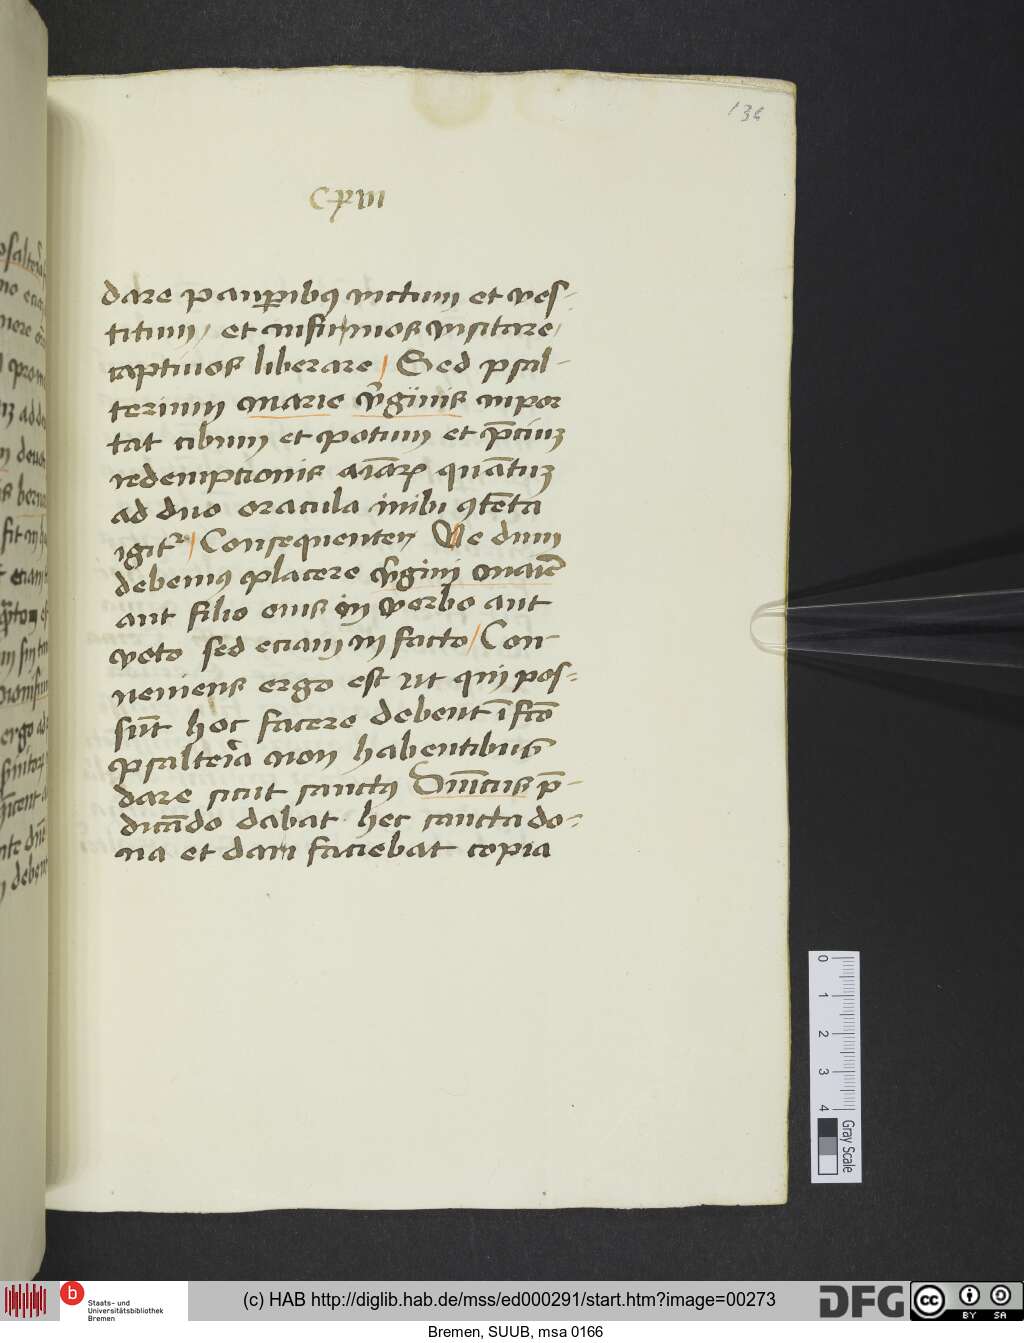 136
dare paup̲ibꝰ victum et ves-
titum, et infirmos visitare,
captiuos liberare / Sed psal-
terium marie v̄ginis inpor
tat cibum et potum et p̄ciuꝫ
redemptionis aīaꝝ quātuꝫ
ad duo oracula inibi ꝯtēta
igit᷑ / Consequenter Ne dum
debemꝰ ꝯplacere v̄gini marie
aut filio eius in verbo aut
voto sed eciam in facto / Con
ueniens ergo est ut qui pos-
sūt hoc facere debent ī fc̄o
psalteria non habentibus
dare sicut sanctꝰ Dn̄icus p̄-
dicādo dabat hec sancta do-
na et dari faciebat copia
0 1 2 3 4 Gray Scale
b Staats- und
Universitätsbibliothek
Bremen
(c) HAB http://diglib.hab.de/mss/ed000291/start.htm?image=00273
DFG cc BY SA
Bremen, SUUB, msa 0166